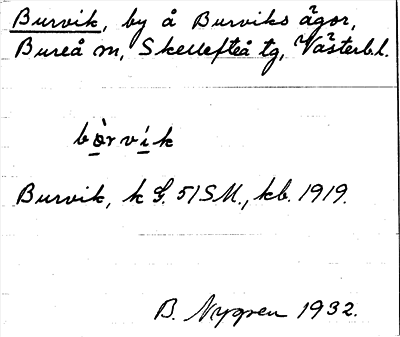 Burvik, by å Burviks ägor,
Bureå sn, Skellefteå tg, Västerb.l.
bòrvík
Burvik, k G. 51 SM., kb. 1919.
B. Nygren 1932.